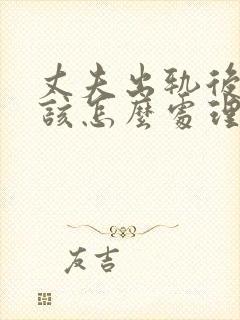 丈夫出軌後
該怎麼處理
友吉